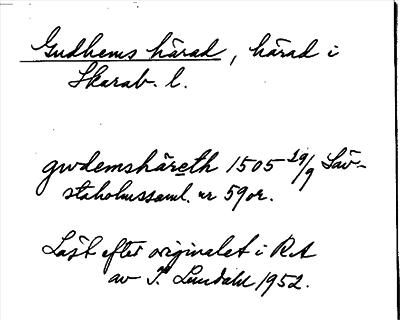 Gudhems härad, härad i
Skarab. l.
gwdemshäreth 1505 29/9 Säv-
staholmssaml. nr 59or.
Läst efter originalet i RA
av I. Lundahl 1952.